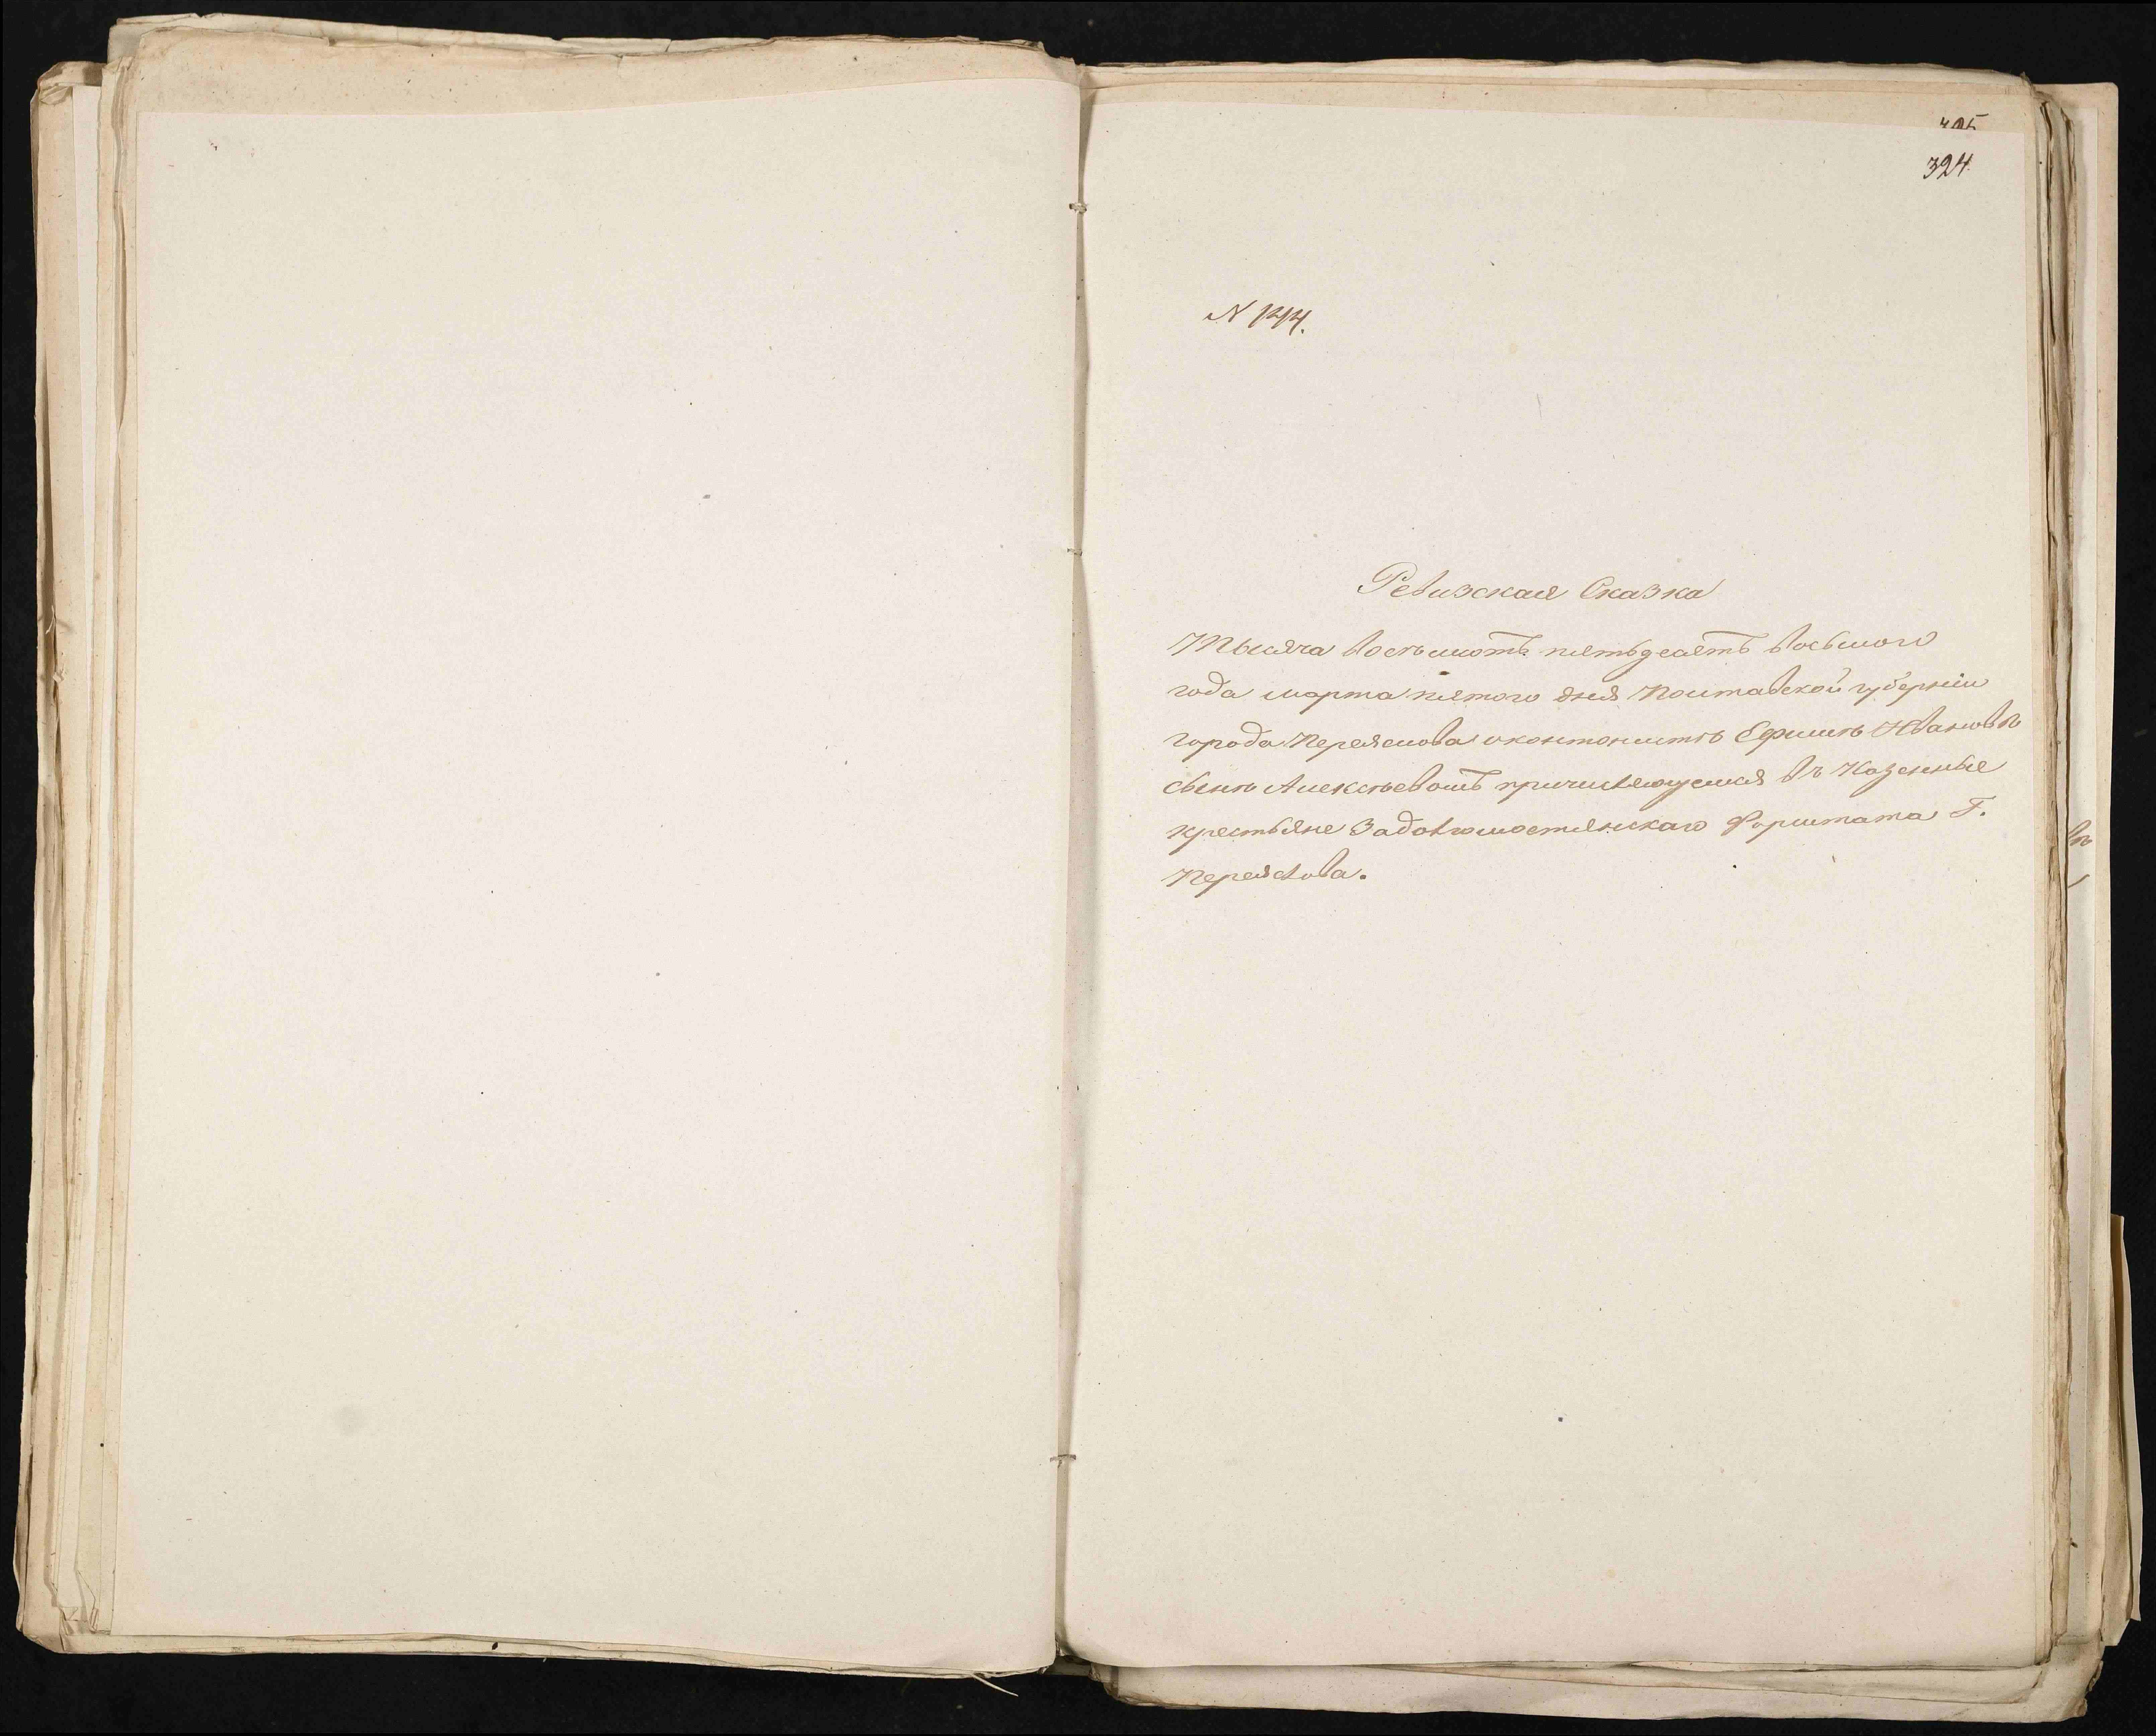 324.
N 144.
Ревизская Сказка
Тысяча восемьсотъ пятьдесятъ восьмого
года марта пятого дня Полтавской губерніи
города Переяслова Ефимъ Ивановъ
сынъ Алексѣевъ причисляющемся въ Казенные
крестьяне форштата Г.
Переяслова.